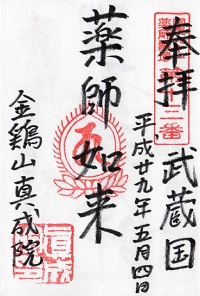 奉拝 武蔵国
平成廿九年五月四日
薬師如来
金鶏山真成院